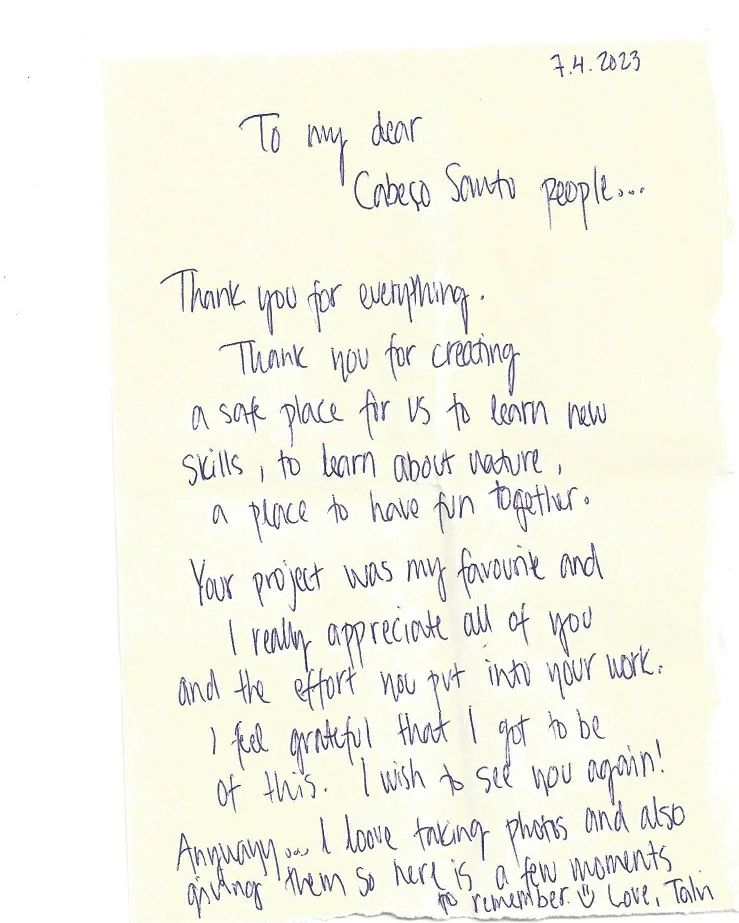 7.4.2023
To my dear
Cabeço Santo people...
Thank you for everything.
Thank you for creating
a safe place for us to learn new
skills, to learn about nature,
a place to have fun together.
Your project was my favourite and
I really appreciate all of you
and the effort you put into your work.
I feel grateful that I got to be
of this. I wish to see you again!
Anywayy... I loove taking photos and also
giving them so here is a few moments
to remember. ☺ Love,